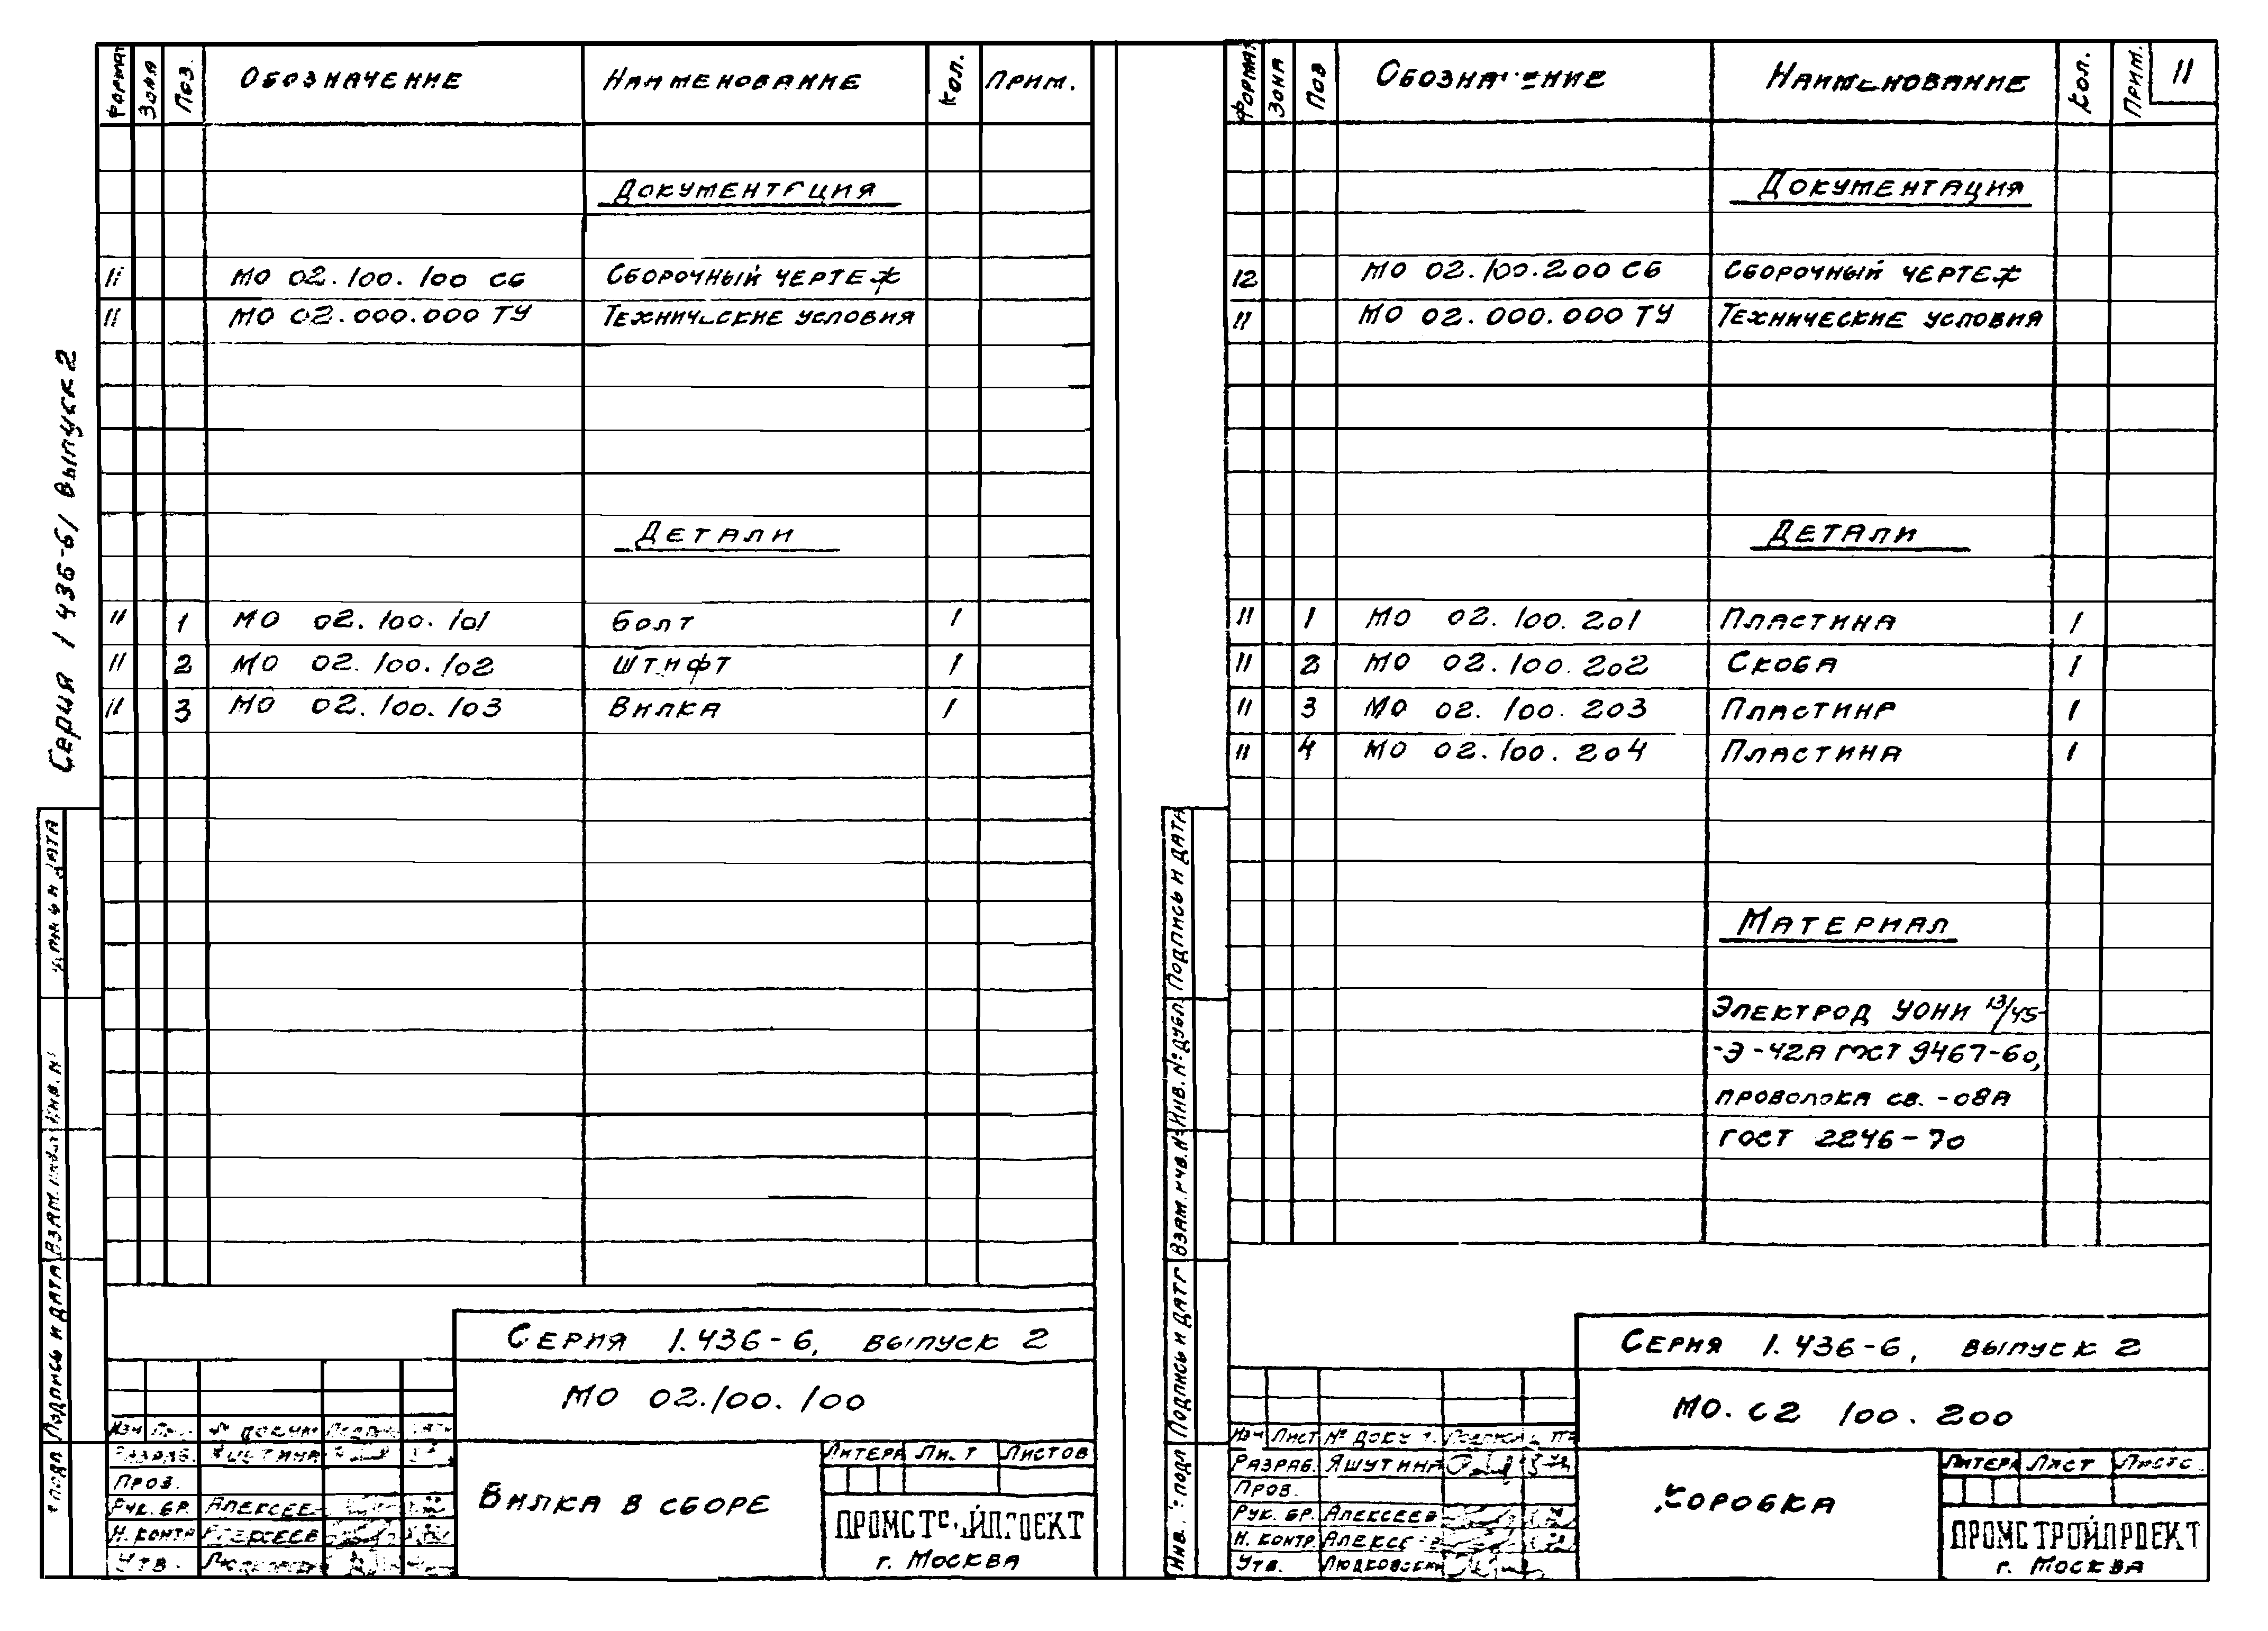 Серия 1 436-61 выпуск 2
Формат Зона Поз. Обозначение Наименование Кол. Прим.
Документация
11 МО 02.100.100 СБ Сборочный чертеж
11 МО 02.000.000 ТУ Технические условия
Детали
11 1 МО 02.100.101 Болт 1
11 2 МО 02.100.102 Штифт 1
11 3 МО 02.100.103 Вилка 1
Подпись и дата
Взам.
Инв. №
дата
подл
Серия 1.436-6, выпуск 2
МО 02.100.100
Вилка в сборе
Изм
Разраб.
Пров.
Рук. бр. Алексеев
Н. контр Алексеев
Утв.
Литера Лист Листов
Промстройпроект
г. Москва
Формат Зона Поз Обозначение Наименование Кол. Прим. 11
Документация
12 МО 02.100.200 СБ Сборочный чертеж
11 МО 02.000.000 ТУ Технические условия
Детали
11 1 МО 02.100.201 Пластина 1
11 2 МО 02.100.202 Скоба 1
11 3 МО 02.100.203 Пластина 1
11 4 МО 02.100.204 Пластина 1
Материал
Электрод УОНИ 13/45-
-Э-42А ГОСТ 9467-60,
проволока св.-08А
ГОСТ 2246-70
Подпись и дата
Инв. № дубл.
Взам. инв. №
Подпись и дата
Инв. № подл
Серия 1.436-6, выпуск 2
МО. 02 100.200
Коробка
Изм Лист № докум.
Разраб. Яшутина
Пров.
Рук. бр. Алексеев
Н. контр. Алексеев
Утв. Людковский
Литера Лист Листов
Промстройпроект
г. Москва